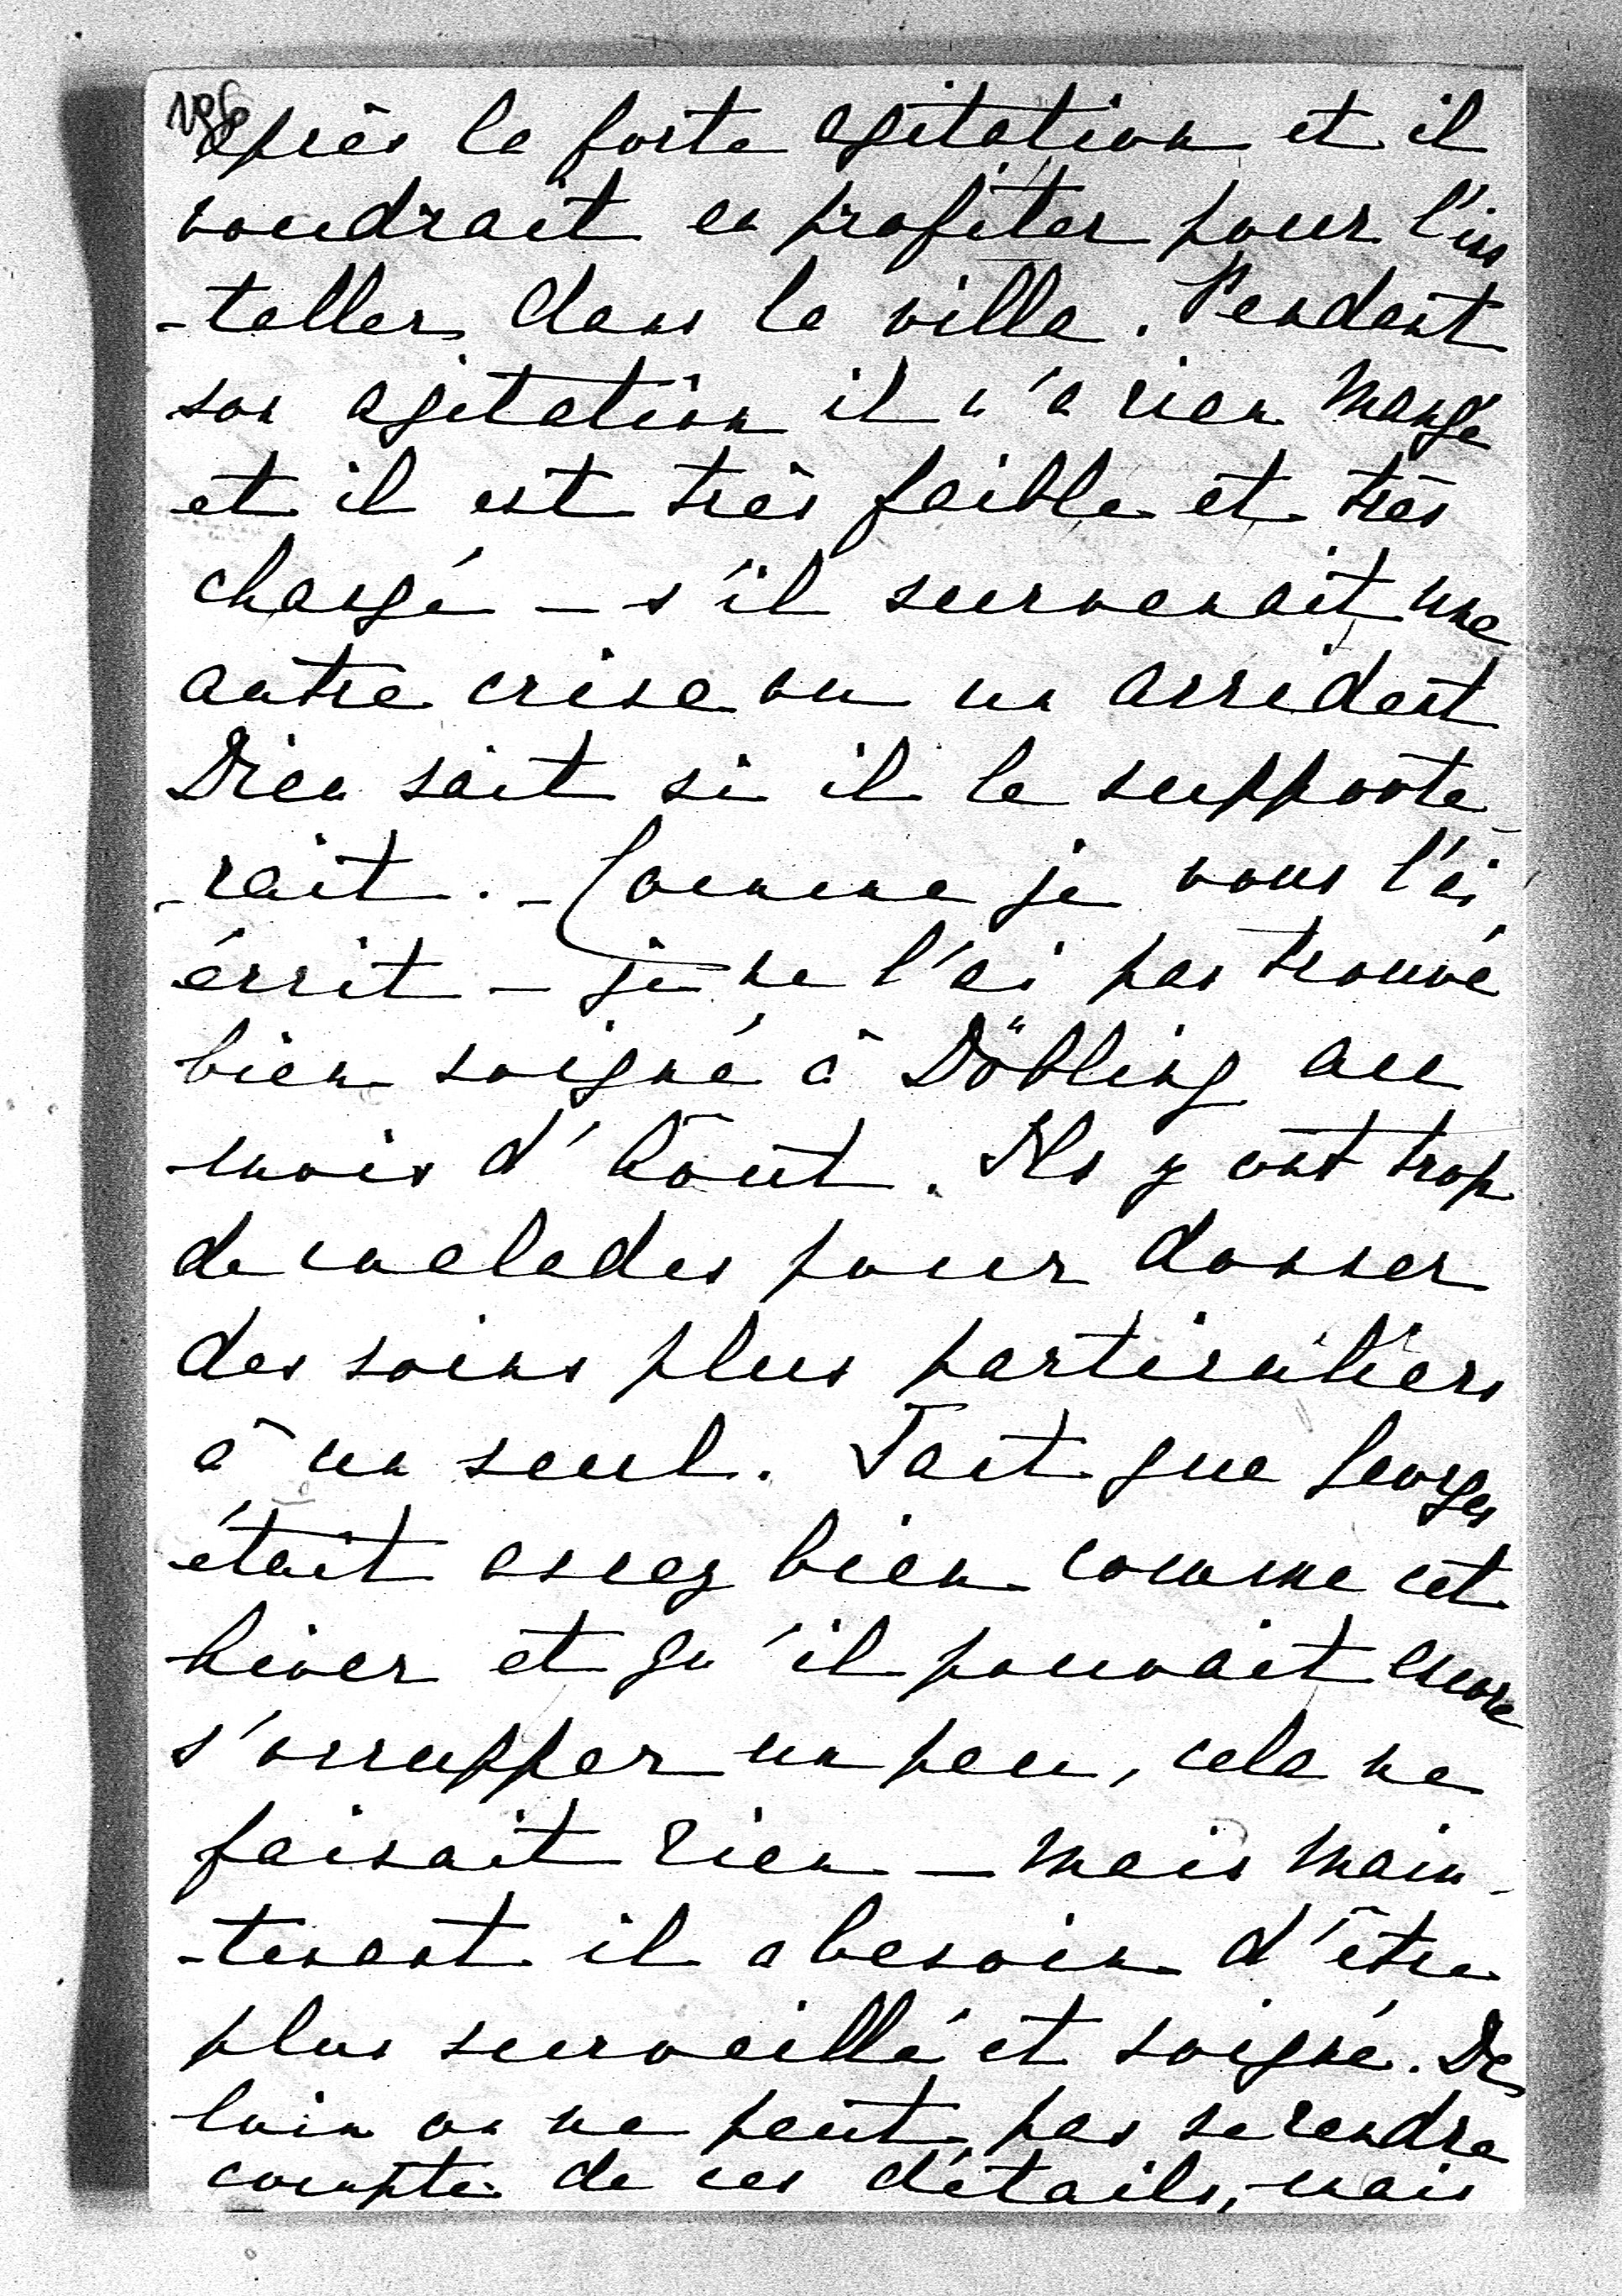 après la forte agitation et il
voudrait en profiter pour l'ins
-taller dans la villa. Pendant
son agitation il n'a rien mangé
et il est très faible et très
changé – s'il survenait une
autre crise ou un accident
Dieu sait si il le supporte-
-rait. – Comme je vous l'ai
écrit – je ne l'ai pas trouvé
bien soigné à Döbling au
mois d'Août. Ils y ont trop
de malades pour donner
des soins plus particuliers
à un seul. Tant que Georges
était assez bien comme cet
hiver et qu'il pouvait encore
s'occupper un peu, cela ne
faisait rien – mais main-
-tenant il a besoin d'être
plus surveillé et soigné. De
loin on ne peut pas se rendre
compte de ces détails, mais